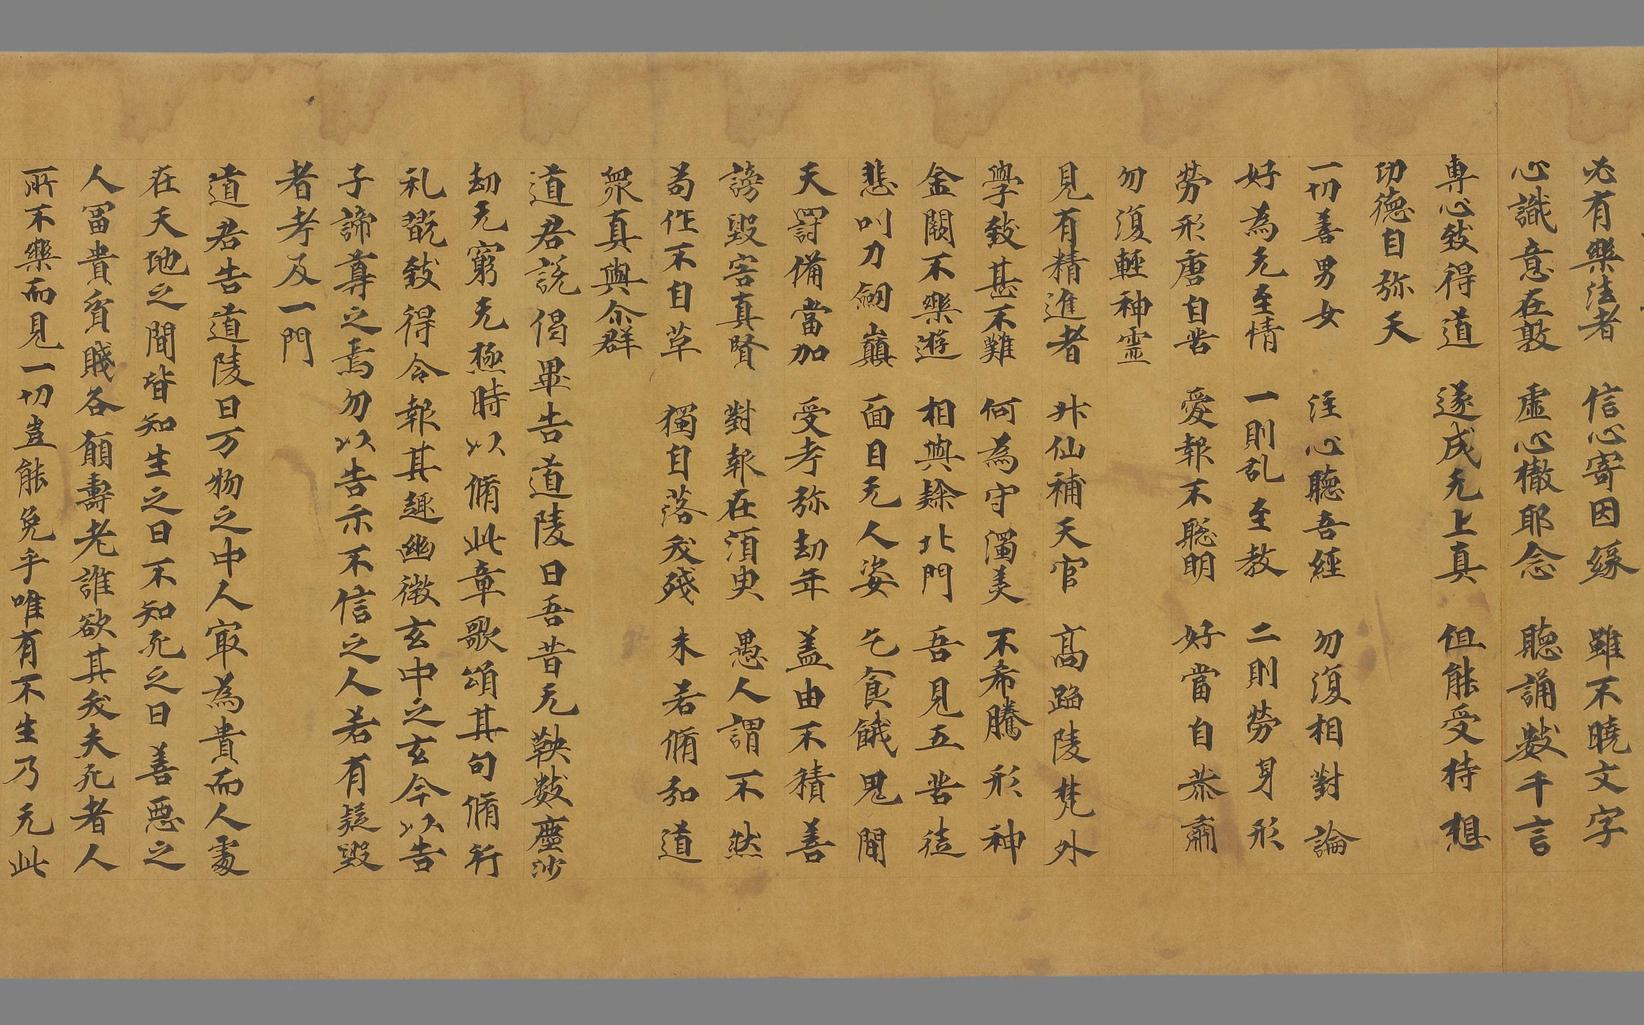 必有樂法者　信心寄因緣　雖不曉文字
心識意在敦　虛心檄耶念　聽誦數千言
專心致得道　遂成无上真　但能受持想
功德自弥天
一切善男女　注心聽吾經　勿復相對論
好為充至情　一則乱至教　二則勞身形
勞形唐自苦　愛報不聡明　好當自恭肅
勿復輕神靈
見有精進者　升仙補天官　高蹈陵梵外
學致甚不難　何為守濁美　不希騰形神
金闕不樂遊　相與餘北門　吾見五苦徒
悲叫刀劔巔　面目无人姿　乞食餓鬼間
天罰備當加　受考弥劫年　盖由不積善
謗毀害真賢　對報在湏臾　愚人謂不然
苟作不自草　獨自落矣殘　未若脩弘道
衆真與尒群
道君說偈畢告道陵曰吾昔无鞅數塵沙
劫无窮无極時以脩此章歌頌其句脩行
礼翫致得今報其趣幽微玄中之玄今以告
子諦尊之焉勿以告示不信之人若有疑毀
者考及一門
道君告道陵曰万物之中人寂為貴而人處
在天地之間皆知生之日不知死之日善惡之
人冨貴貧賤各願壽老誰欲其矣夫死者人
所不樂而見一切豈能免乎唯有不生乃无此